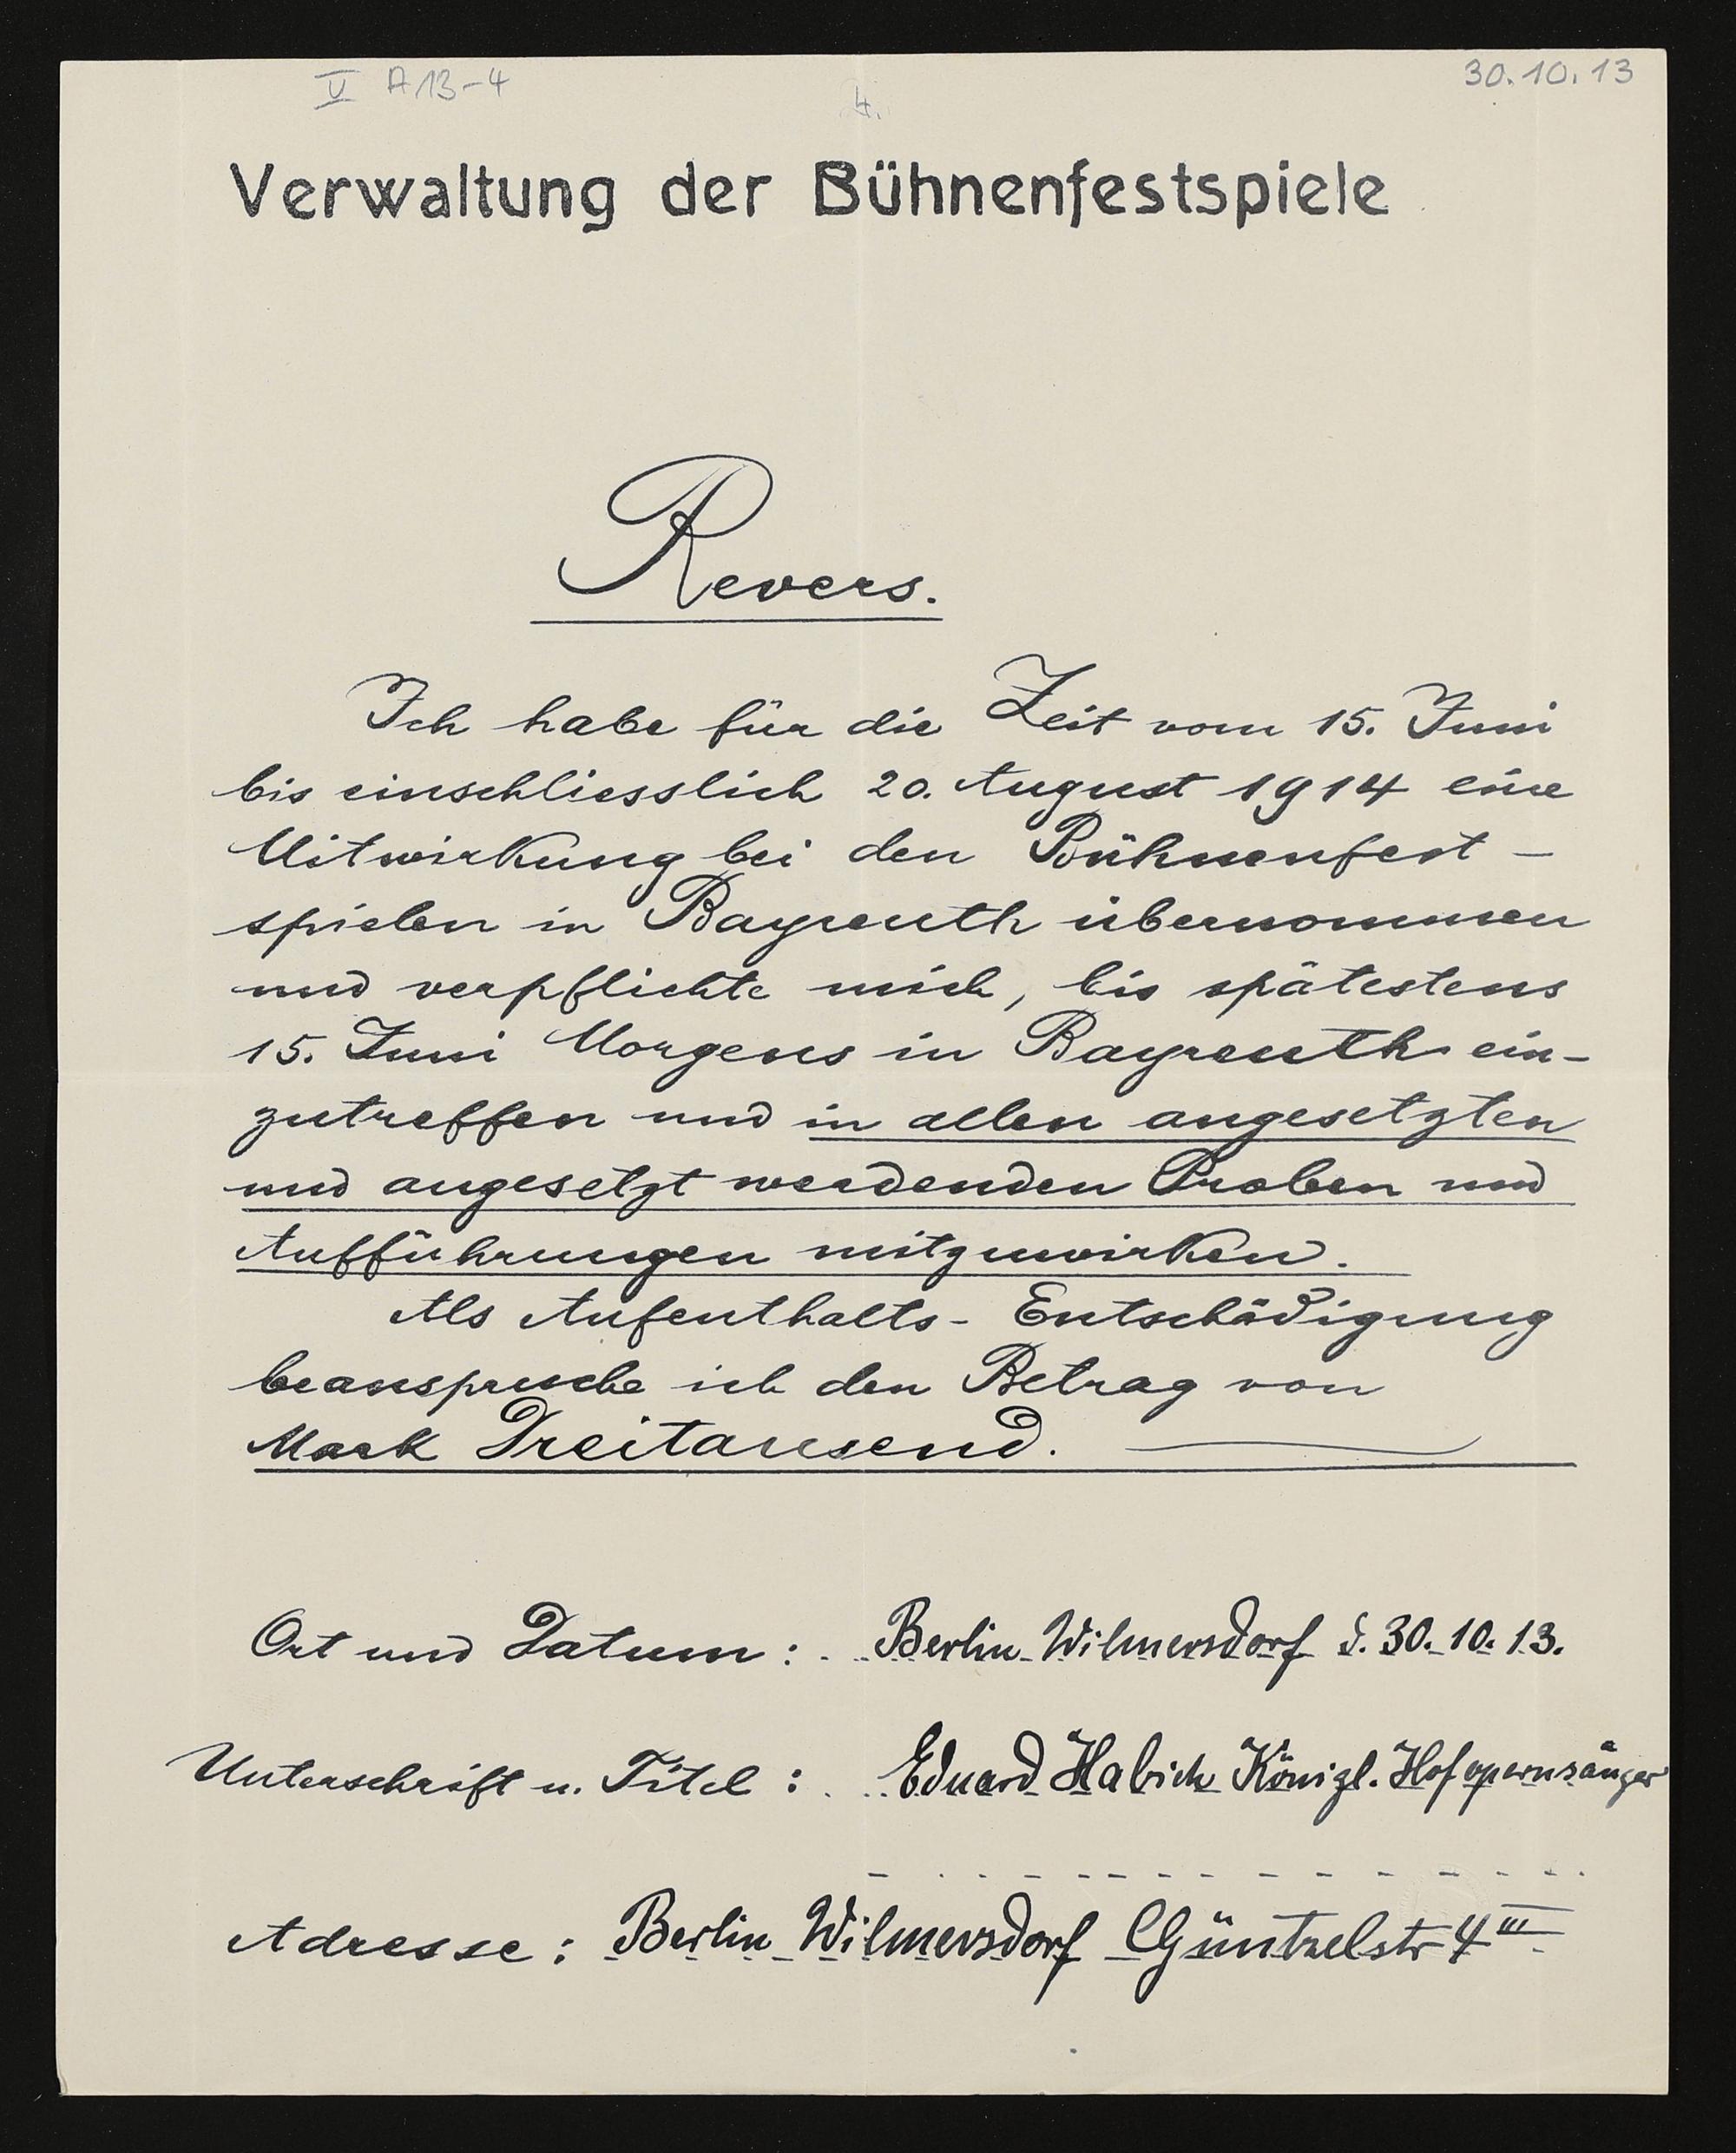 V A 13-4
4.
30.10.13
Verwaltung der Bühnenfestspiele
Revers.
Ich habe für die Zeit vom 15. Juni
bis einschliesslich 20. August 1914 eine
Mitwirkung bei den Bühnenfest-
spielen in Bayreuth übernommen
und verpflichte mich, bis spätestens
15. Juni Morgens in Bayreuth ein-
zutreffen und in allen angesetzten
und angesetzt werdenden Proben und
Aufführungen mitzuwirken.
Als Aufenthalts-Entschädigung
beanspruche ich den Betrag von
Mark Dreitausend.
Ort und Datum: Berlin-Wilmersdorf d. 30.10.13.
Unterschrift u. Titel: Eduard Habich Königl. Hofopernsänger
Adresse: Berlin Wilmersdorf Güntzelstr 4 III